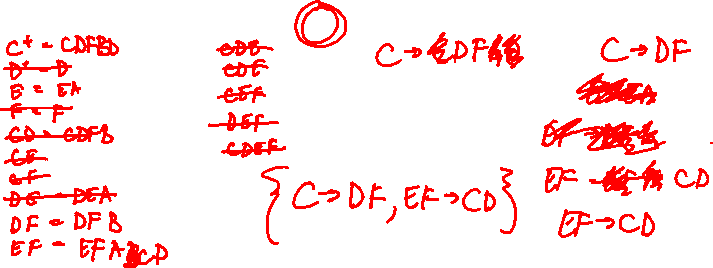 C+ = CDFBD
D+ = D
E = EA
F = F
CD = CDFB
CE
CF
DE = DEA
DF = DFB
EF = EFA CD
CDE
CDF
CEF
DEF
CDEF
C → DF
{ C → DF, EF → CD }
C → DF
EA
EF →
EF CD
EF → CD